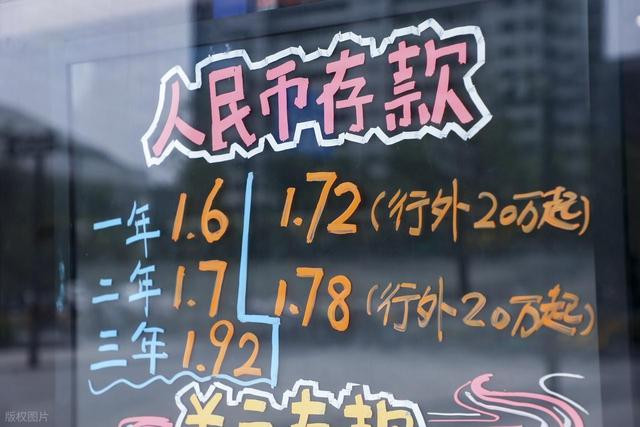 人民币存款
一年 1.6 1.72(行外20万起)
二年 1.7 1.78(行外20万起)
三年 1.92
美元存款
版权图片